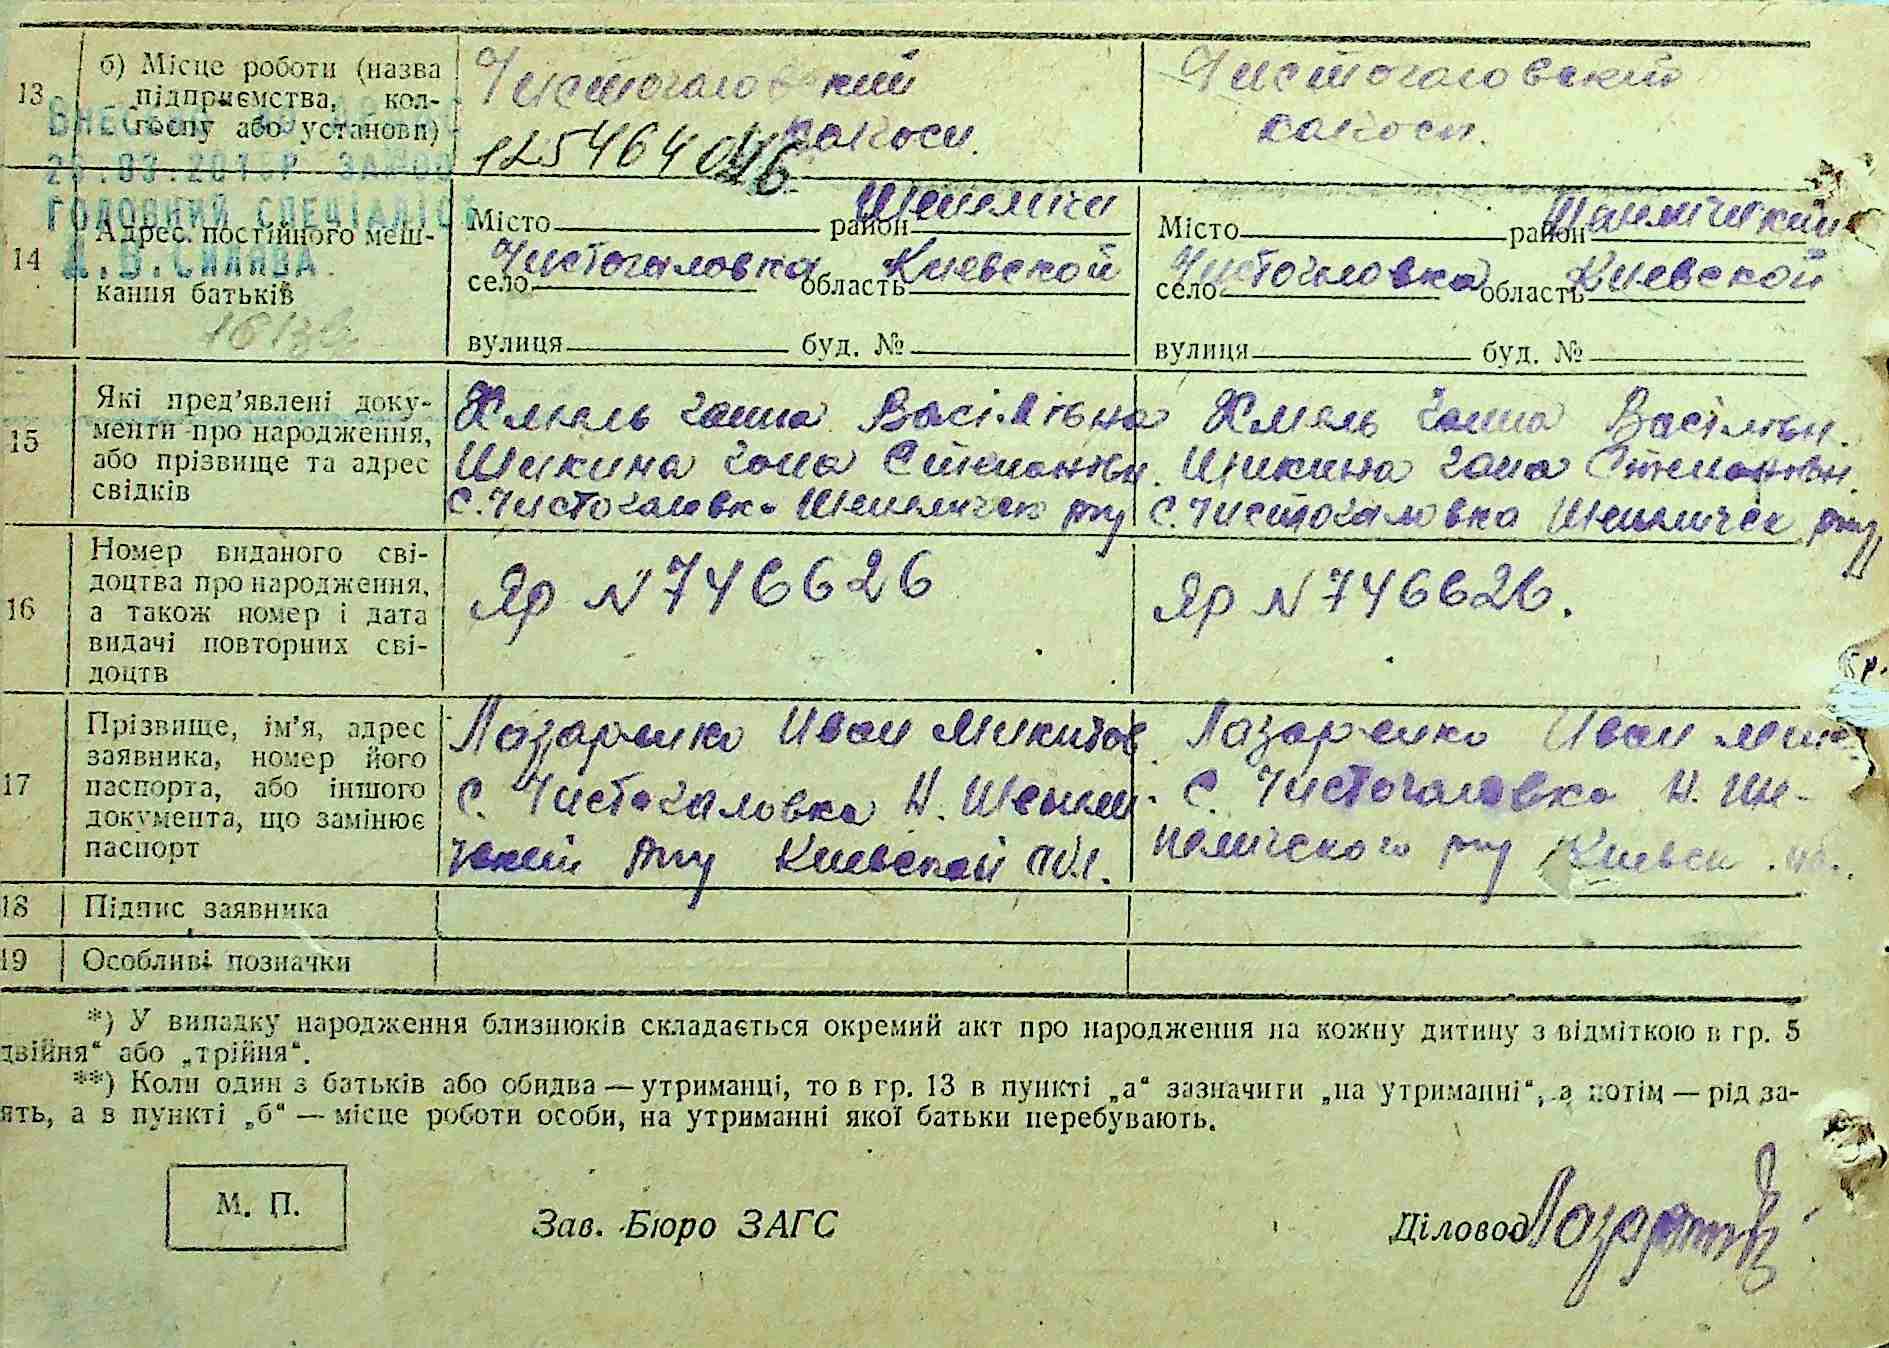 13
б) Місце роботи (назва
підприємства, кол-
госпу або установи)
Чистогаловский
колхосп.
125464046
Чистогаловский
колхосп.
ВНЕСЕНО ДО ДРАЦС
ГОЛОВНИЙ СПЕЦІАЛІСТ
14
Адрес. постійного меш-
кання батьків
Місто район
село Чистогаловка область Киевской
вулиця буд. №
Місто район
село Чистогаловка область Киевской
вулиця буд. №
15
Які пред'явлені доку-
менти про народження,
або прізвище та адрес
свідків
Хмель Ганна Васілівна
Степановн.
С. Чистогаловка
Хмель Ганна Васілівн.
Степановн.
С. Чистогаловка
16
Номер виданого сві-
доцтва про народження,
а також номер і дата
видачі повторних сві-
доцтв
Яр N 746626
Яр N 746626.
17
Прізвище, ім'я, адрес
заявника, номер його
паспорта, або іншого
документа, що замінює
паспорт
Лазаренко Иван Микитов
С. Чистогаловка Н. Шепели-
чский р-ну Киевской обл.
Лазаренко Иван Мик
С. Чистогаловка Н. Ше-
пеличского р-ну Киевск. об.
18
Підпис заявника
19
Особливі позначки
*) У випадку народження близнюків складається окремий акт про народження на кожну дитину з відміткою в гр. 5
двійня“ або „трійня“.
**) Коли один з батьків або обидва — утриманці, то в гр. 13 в пункті „а“ зазначити „на утриманні“, а потім — рід за-
ять, а в пункті „б“ — місце роботи особи, на утриманні якої батьки перебувають.
М. П.
Зав. Бюро ЗАГС
Діловод